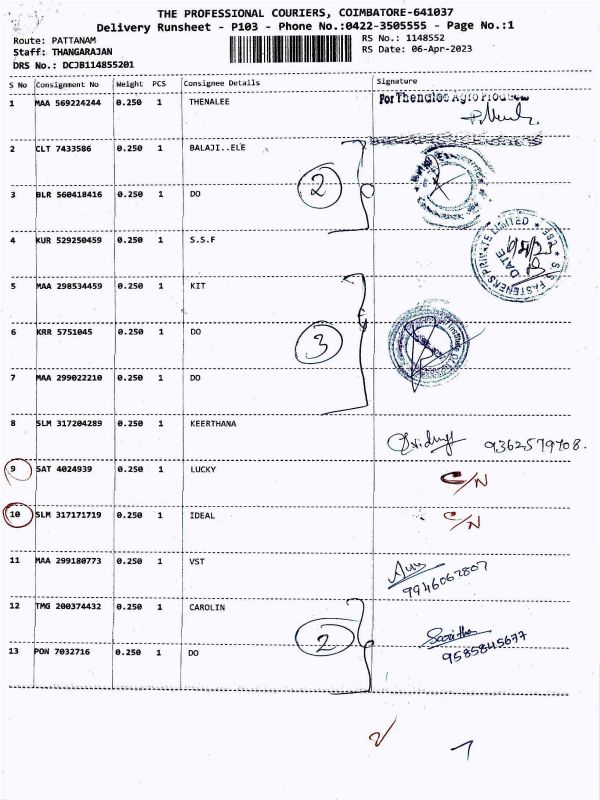 THE PROFESSIONAL COURIERS, COIMBATORE-641037
Delivery Runsheet - P103 - Phone No.:0422-3505555 - Page No.:1
Route: PATTANAM
RS No.: 1148552
Staff: THANGARAJAN
RS Date: 06-Apr-2023
DRS No.: DCJB114855201
S No Consignment No Weight PCS Consignee Details Signature
1 MAA 569224244 0.250 1 THENALEE For Thenalee Agro
2 CLT 7433586 0.250 1 BALAJI..ELE
2
3 BLR 560418416 0.250 1 DO
4 KUR 529250459 0.250 1 S.S.F
FASTENERS PRIVATE LIMITED * 382 * DATE
5 MAA 298534459 0.250 1 KIT
6 KRR 5751045 0.250 1 DO
3
7 MAA 299022210 0.250 1 DO
8 SLM 317204289 0.250 1 KEERTHANA
9362579708.
9 SAT 4024939 0.250 1 LUCKY C/N
10 SLM 317171719 0.250 1 IDEAL C/N
11 MAA 299180773 0.250 1 VST
9946062807
12 TMG 200374432 0.250 1 CAROLIN
2
13 PON 7032716 0.250 1 DO
9585845677